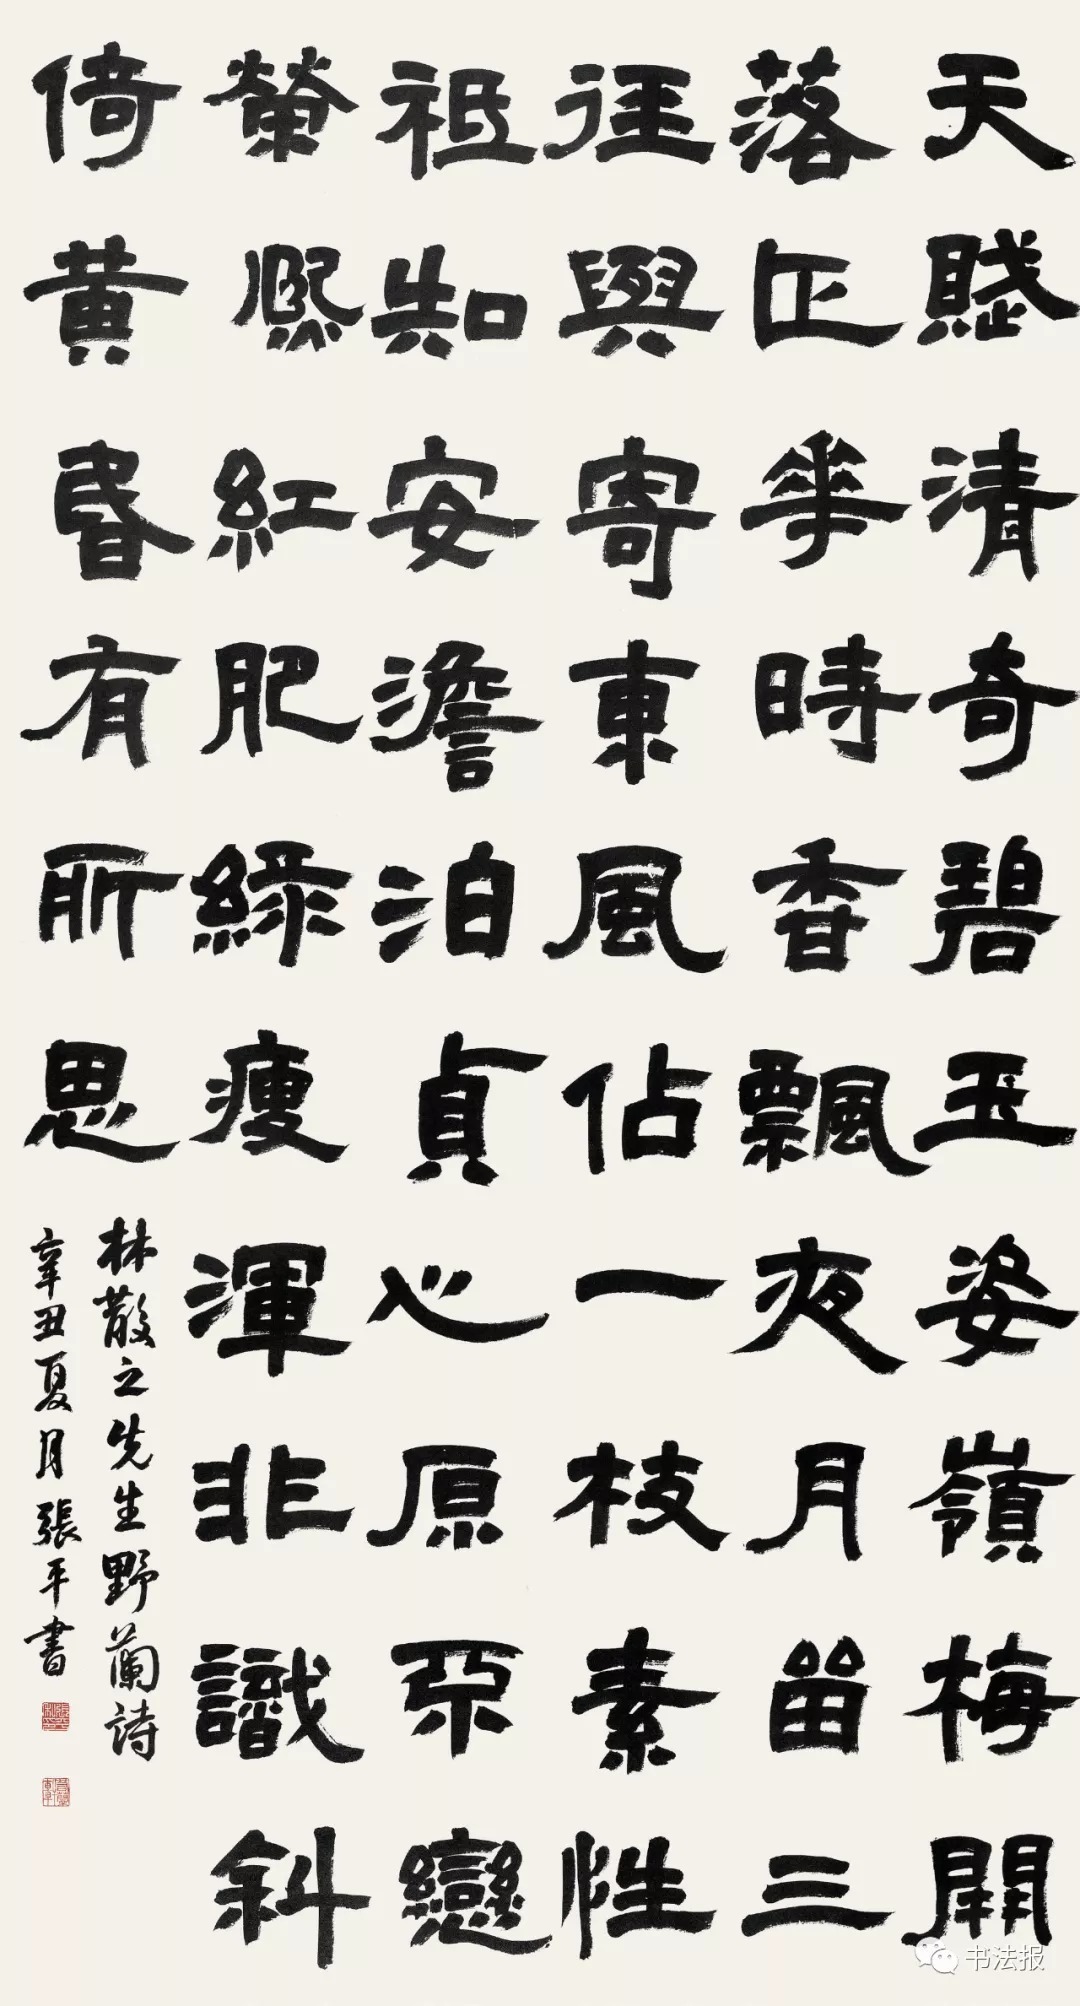 天賦清奇碧玉姿嶺梅開
落正華時香飄夜月留三
徑興寄東風佔一枝素性
祗知安澹泊貞心原不戀
榮熙紅肥綠瘦渾非識斜
倚黃昏有所思
林散之先生野蘭詩
辛丑夏月張平書
书法报